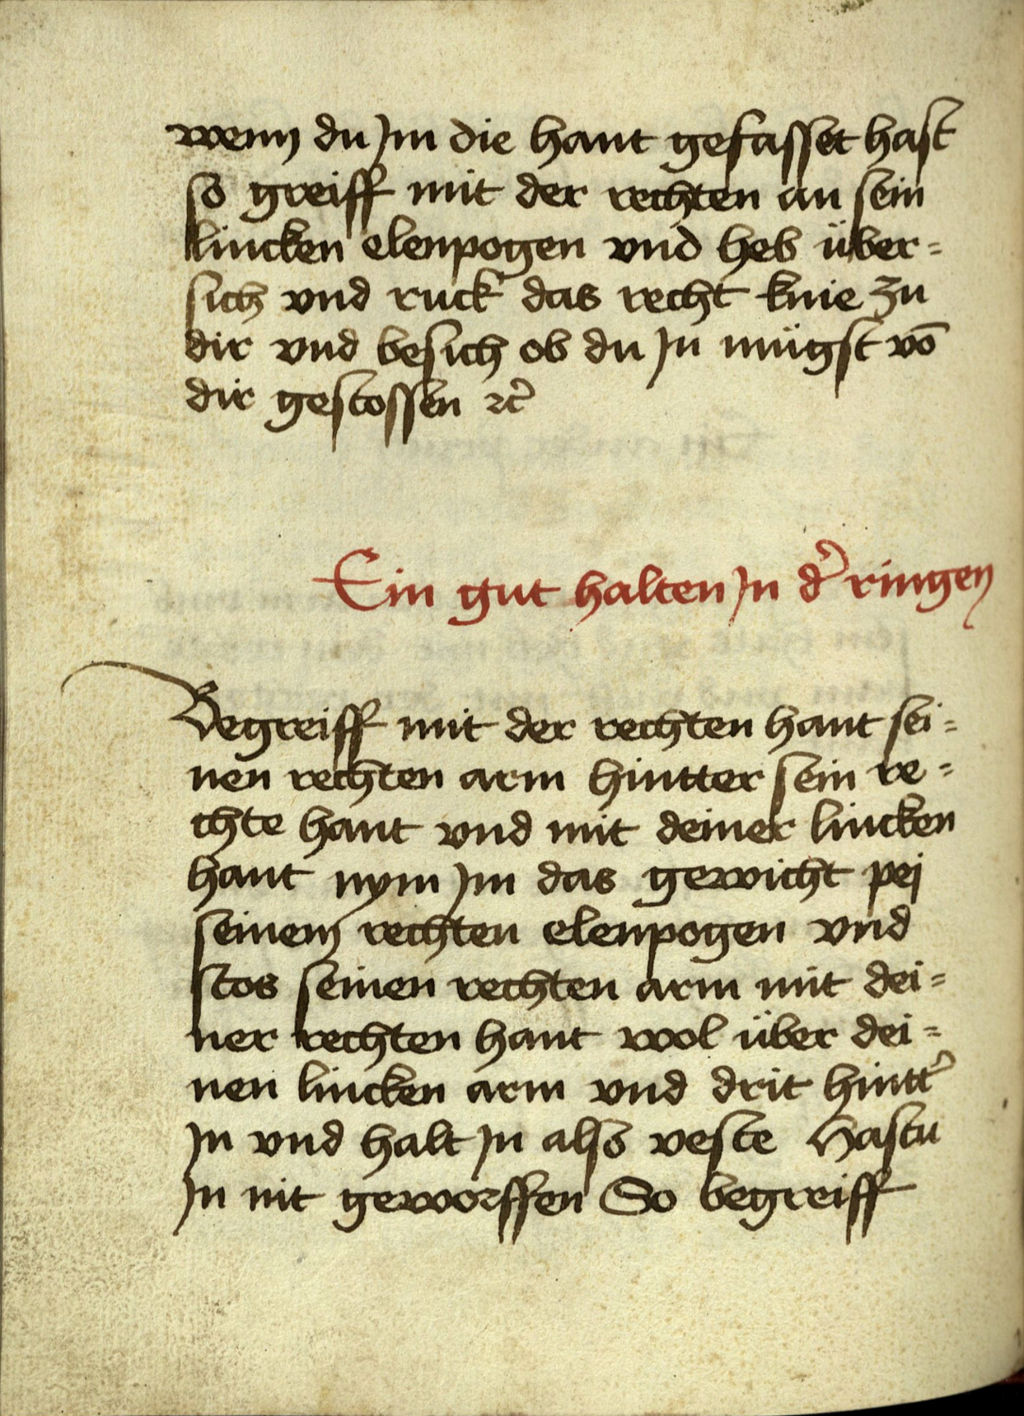 wenn du Jm die hant gefasset hast
so greiff mit der rechten an sein
lincken elenpogen vnd heb über=
sich vnd ruck das recht knie zu
dir vnd besich ob du Jn mügst vō
dir gestossen ⁊c̄
Ein gut halten Jn d̾ ringen
Begreiff mit der rechten hant sei=
nen rechten arm hintter sein re=
chte hant vnd mit deiner lincken
hant nym Jm das gewicht pej
seinem rechten elenpogen vnd
stos seinen rechten arm mit dei=
ner rechten hant wol über dei=
nen lincken arm vnd drit hintt̾
Jn vnd halt Jn also veste Hastu
Jn nit geworffen So begreiff